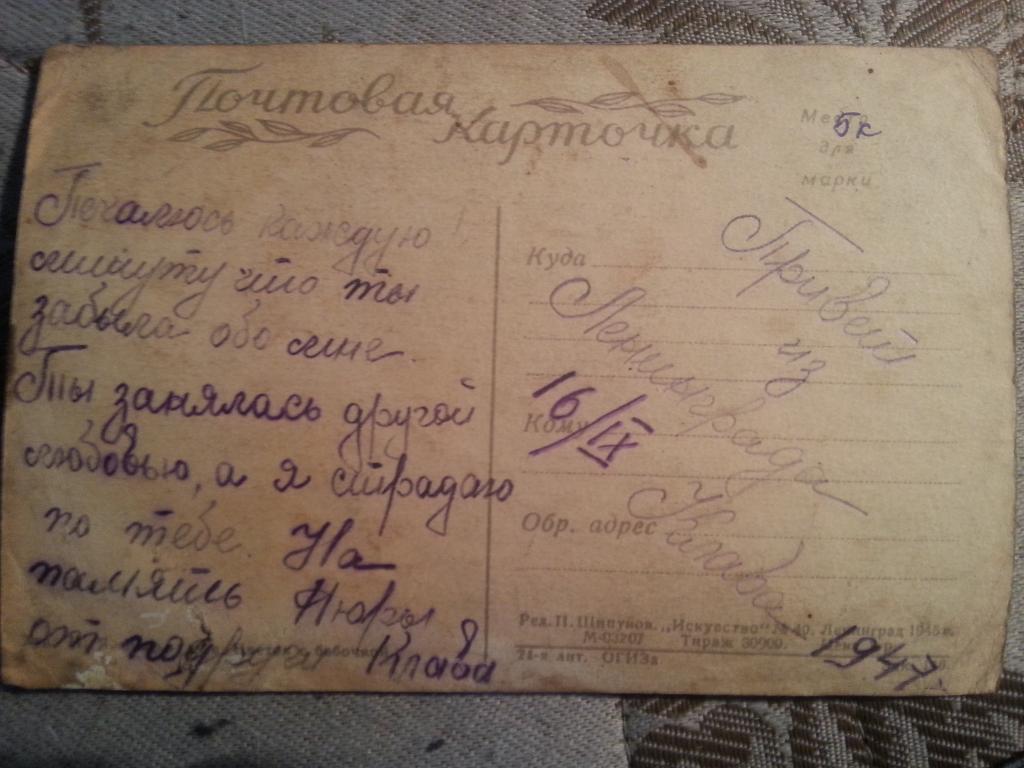 Почтовая
Карточка
Место
для
марки
5к
Печалюсь каждую
минуту что ты
забыла обо мне.
Ты занялась другой
любовью, а я страдаю
по тебе. На
память Нюры
от подруги Клава
Куда
Кому
Обр. адрес
Привет
из
Ленинграда
Клава
16/IX
1947.
Ред. П. Шипунов. „Искусство" № 40. Ленинград 1945 г.
М-03207 Тираж 30000.
24-я лит. ОГИЗа